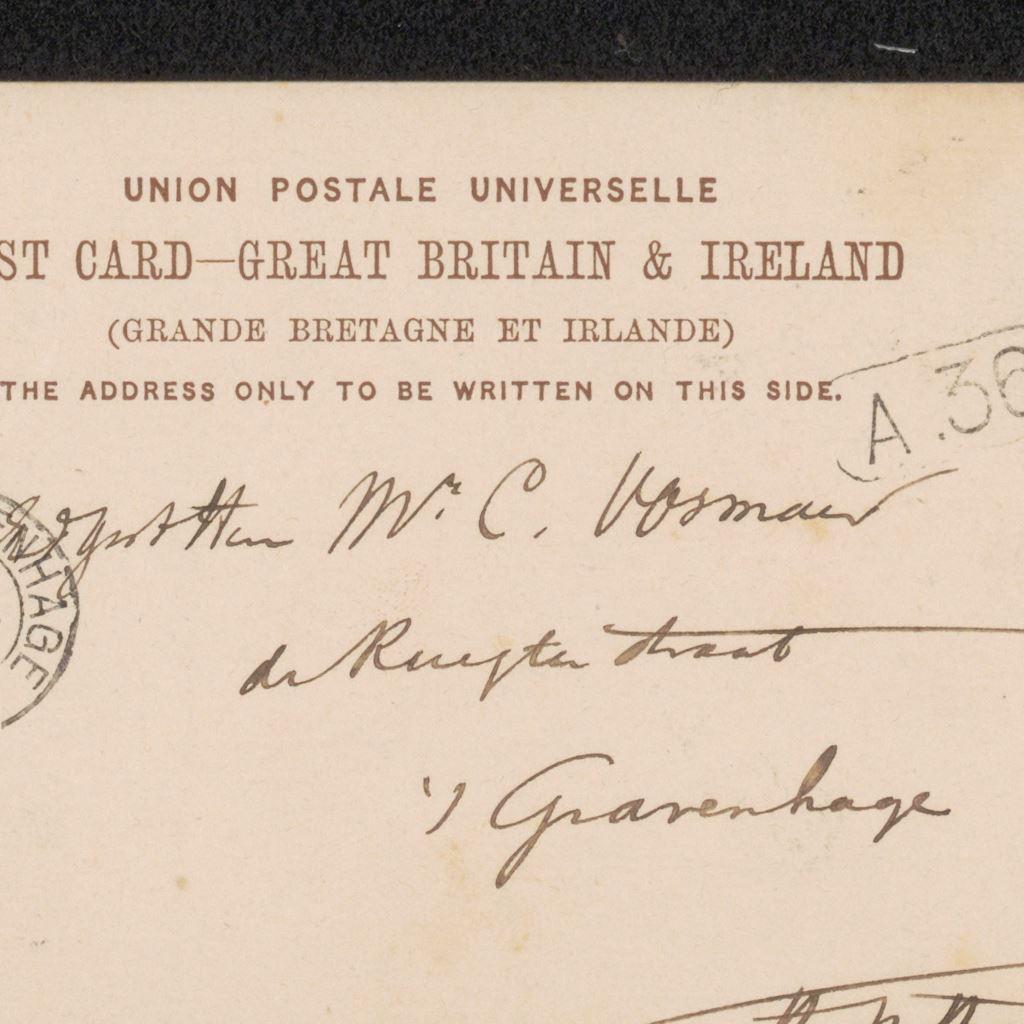 UNION POSTALE UNIVERSELLE
ST CARD—GREAT BRITAIN & IRELAND
(GRANDE BRETAGNE ET IRLANDE)
THE ADDRESS ONLY TO BE WRITTEN ON THIS SIDE.
A.36
Mr. C. Vosmaer
de Ruyter straat
NHAGE
's Gravenhage